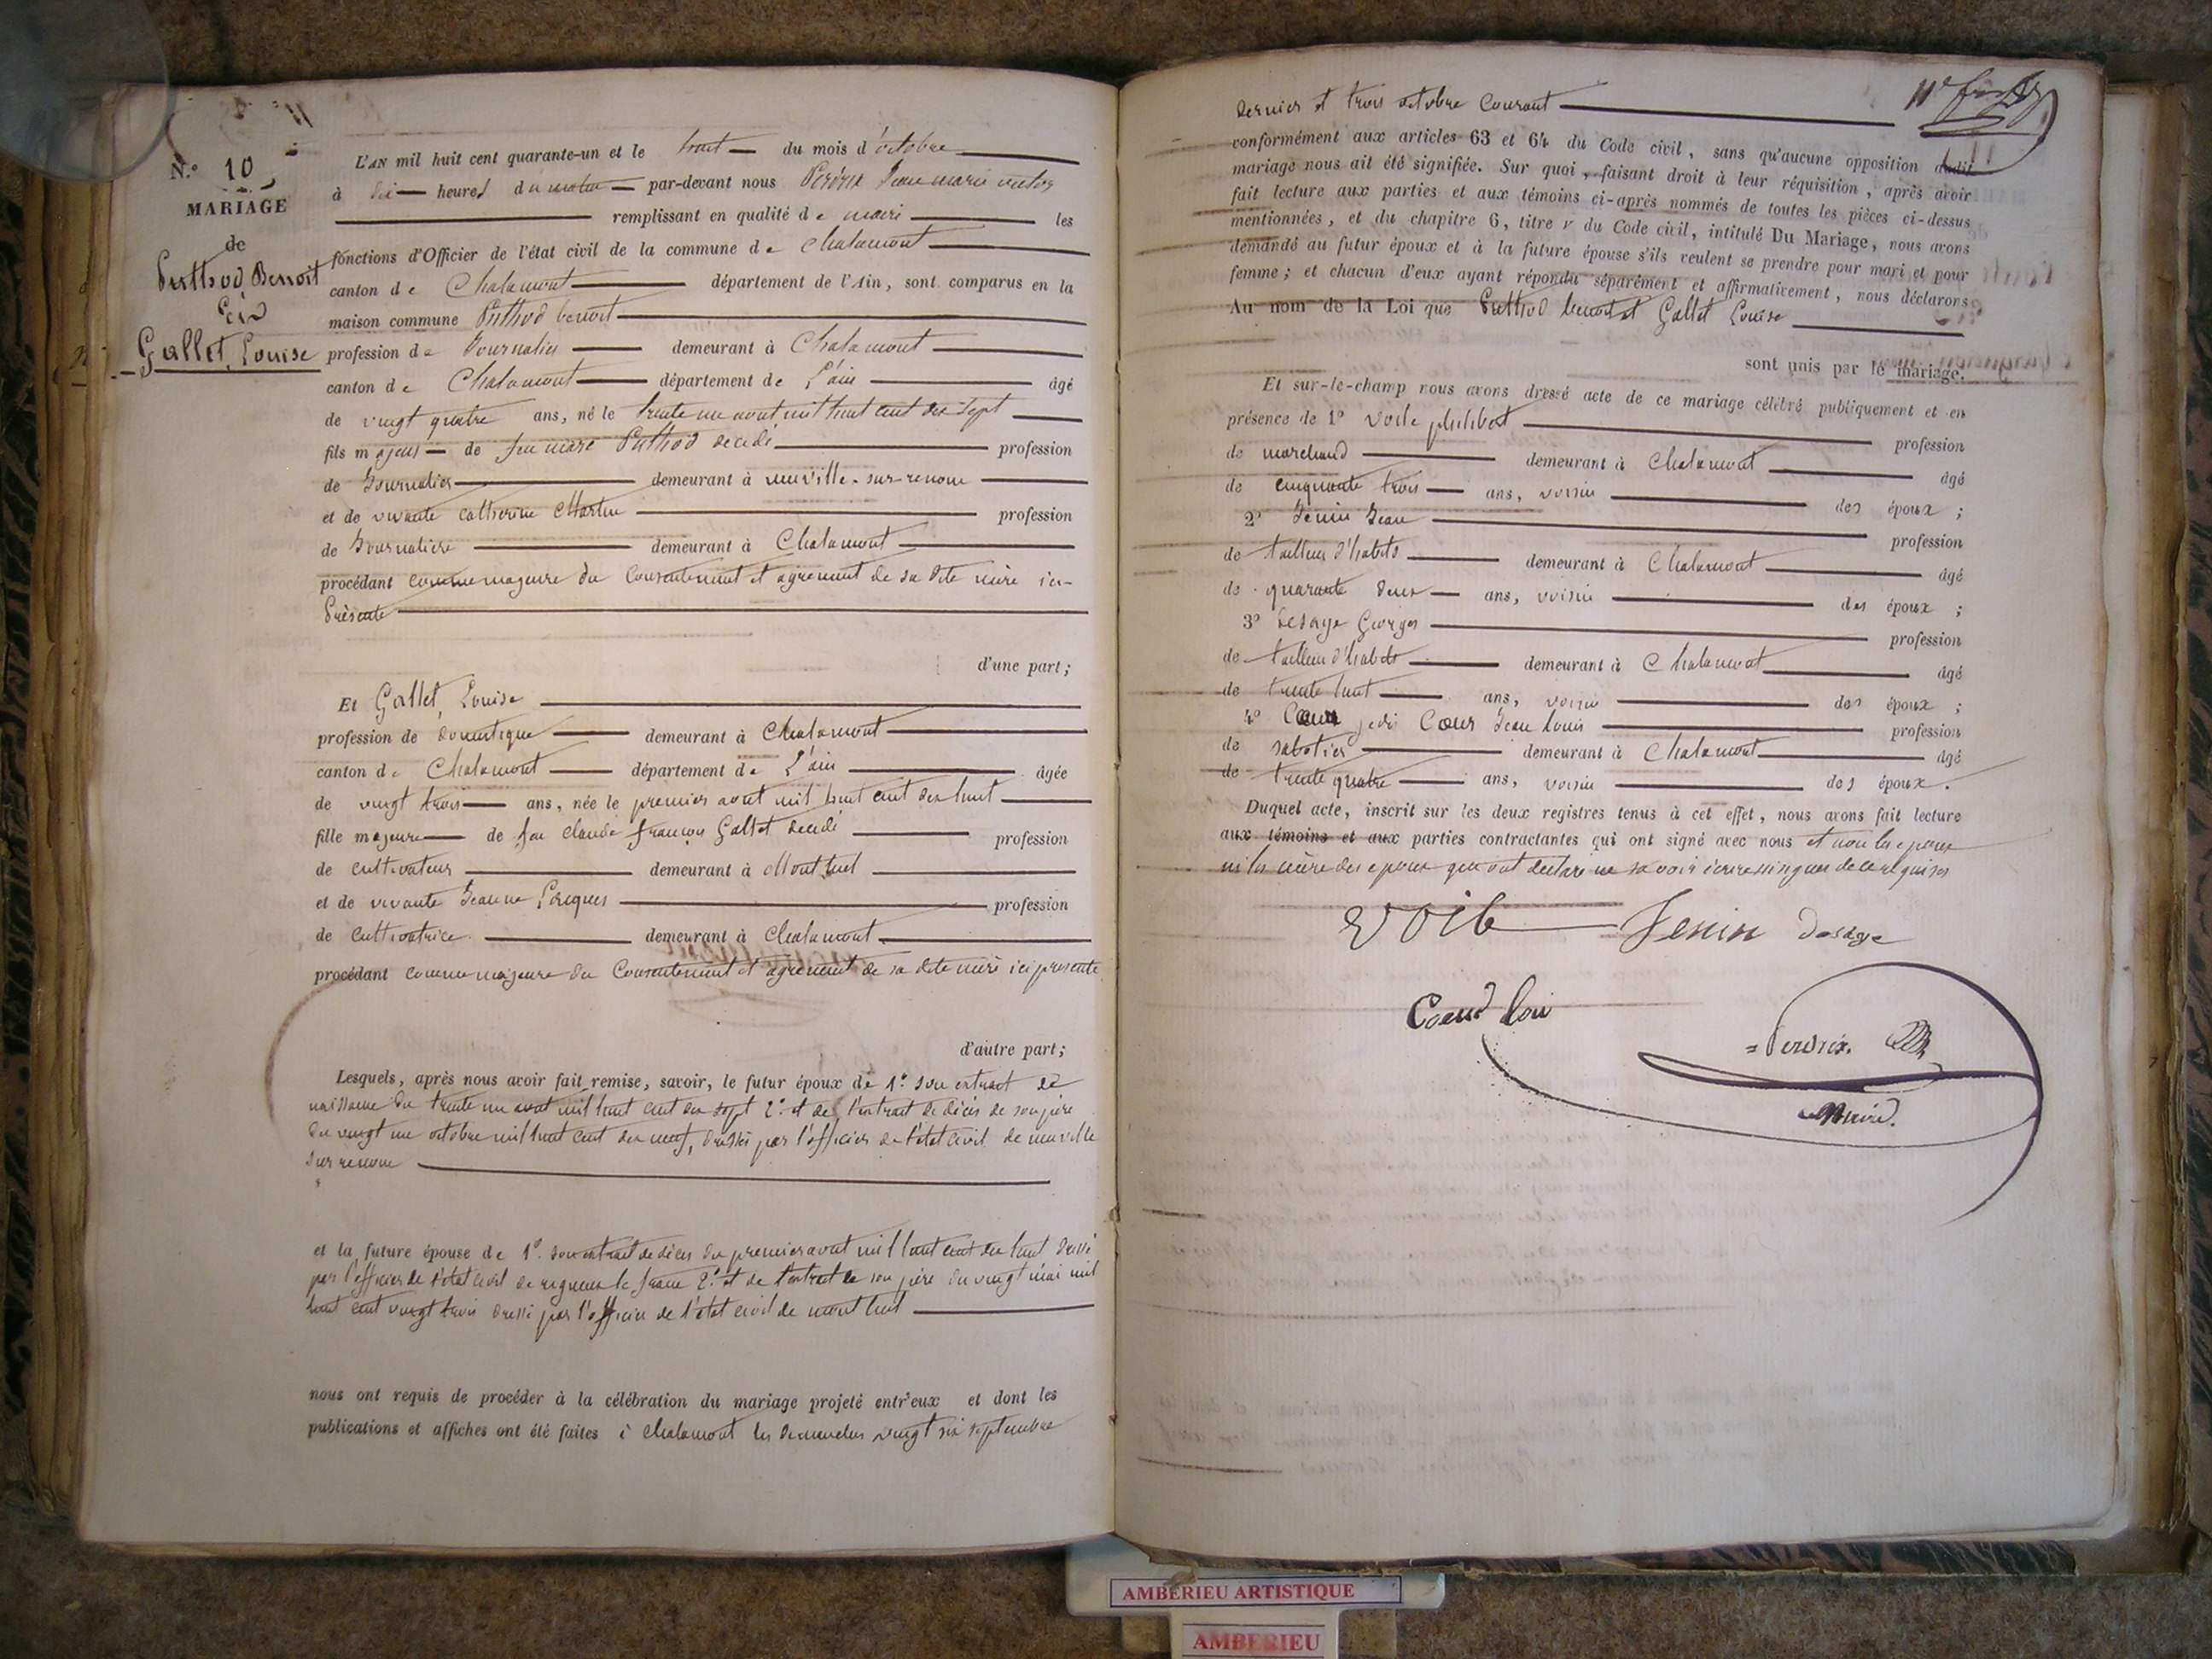 N.° 10
MARIAGE
de
Puthod Benoit
Gallet Louise
L'AN mil huit cent quarante-un et le huit du mois d'octobre
à dix heures du matin par-devant nous Perdrix Jean marie victor
remplissant en qualité de maire les
fonctions d'Officier de l'état civil de la commune de Chalamont
canton de Chalamont département de l'Ain, sont comparus en la
maison commune Puthod benoit
profession de Journalier demeurant à Chalamont
canton de Chalamont département de l'ain âgé
de vingt quatre ans, né le trente un aout mil huit cent dix sept
fils majeur de feu marc Puthod décédé profession
de Journalier demeurant à neuville-sur-renom
et de vivante catherine Martin profession
de Journalière demeurant à Chalamont
procédant comme majeure du Consentement et agrement de sa dite mère ici-
Présente
d'une part;
Et Gallet, Louise
profession de domestique demeurant à Chalamont
canton de Chalamont département de L'ain âgée
de vingt trois ans, née le premier aout mil huit cent dix huit
fille majeure de feu claude françois Gallet décédé profession
de cultivateur demeurant à Montluel
et de vivante Jeanne Pacques profession
de cultivatrice demeurant à Chalamont
procédant comme majeure du Consentement et agrement de sa dite mère ici presente
d'autre part;
Lesquels, après nous avoir fait remise, savoir, le futur époux de 1.° son extrait de
naissance du trente un aout mil huit cent dix sept 2.° et de l'extrait de décès de son père
du vingt un octobre mil huit cent dix neuf, dressés par l'officier de l'état civil de neuville
sur renom
et la future épouse de 1.° son extrait de décès du premier aout mil huit cent dix huit dressé
par l'officier de l'état civil de rigneux le franc 2.° et de l'extrait de son père du vingt mai mil
huit cent vingt trois dressé par l'officier de l'état civil de montluel
nous ont requis de procéder à la célébration du mariage projeté entr'eux et dont les
publications et affiches ont été faites à Chalamont les dimanches vingt six septembre
11e
dernier et trois octobre Courant
conformément aux articles 63 et 64 du Code civil, sans qu'aucune opposition audit
mariage nous ait été signifiée. Sur quoi, faisant droit à leur réquisition, après avoir
fait lecture aux parties et aux témoins ci-après nommés de toutes les pièces ci-dessus
mentionnées, et du chapitre 6, titre v du Code civil, intitulé Du Mariage, nous avons
demandé au futur époux et à la future épouse s'ils veulent se prendre pour mari et pour
femme; et chacun d'eux ayant répondu séparément et affirmativement, nous déclarons
Au nom de la Loi que Puthod benoit et Gallet Louise
sont unis par le mariage.
Et sur-le-champ nous avons dressé acte de ce mariage célébré publiquement et en
présence de 1° Voile philibert profession
de marchand demeurant à Chalamont âgé
de cinquante trois ans, voisin des époux;
2° Jenin Jean profession
de tailleur d'habits demeurant à Chalamont âgé
de quarante deux ans, voisin des époux;
3° Desaye Georges profession
de tailleur d'habits demeurant à Chalamont âgé
de trente huit ans, voisin des époux;
4° Coeur je dis Coeur Jean Louis profession
de sabotier demeurant à Chalamont âgé
de trente quatre ans, voisin des époux.
Duquel acte, inscrit sur les deux registres tenus à cet effet, nous avons fait lecture
aux témoins et aux parties contractantes qui ont signé avec nous et non les epoux
ni les mère des epoux qui ont declaré ne savoir écrire ni signer de ce requises
Voile Jenin Desaye
Coeur loui
Perdrix.
Maire.
AMBERIEU ARTISTIQUE
AMBERIEU